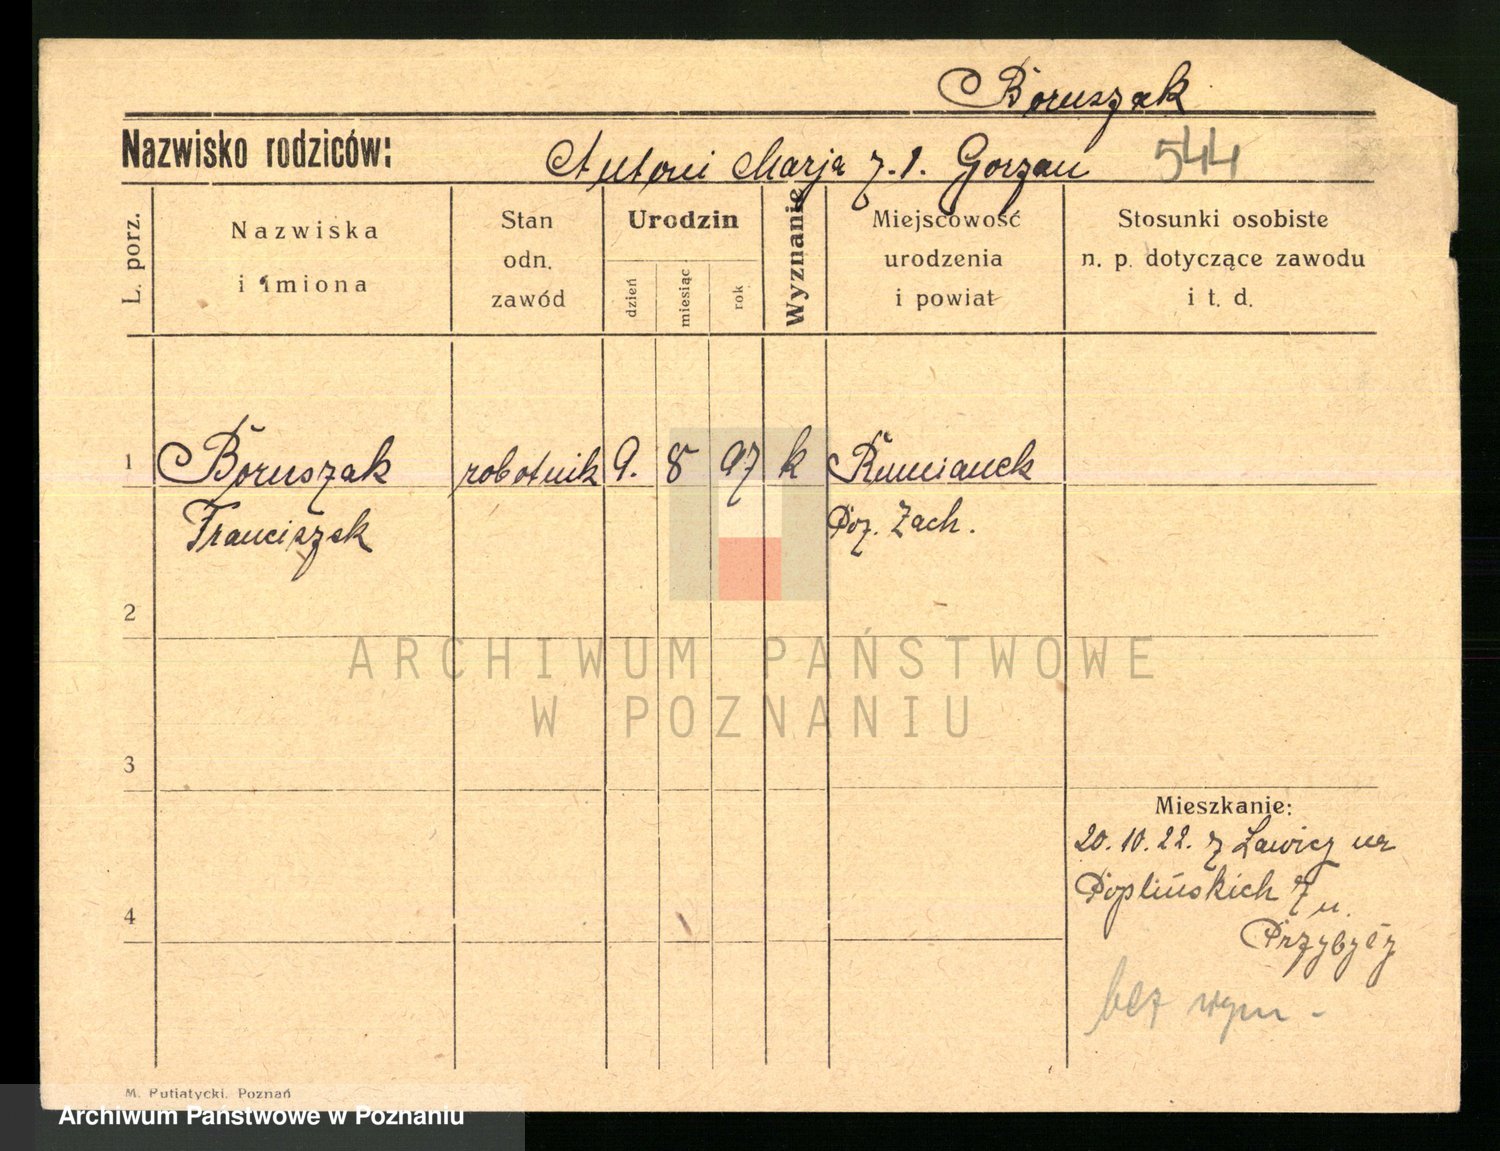 Boruszak
Nazwisko rodziców: Antoni Marja z.d. Gorzan 544
L. porz.
Nazwiska
i imiona
Stan
odn.
zawód
Urodzin
dzień
miesiąc
rok
Wyznanie
Miejscowość
urodzenia
i powiat
Stosunki osobiste
n. p. dotyczące zawodu
i t. d.
1 Boruszak robotnik 9. 8 97 k Rumianek
Franciszek Poz. Zach.
2
3
4
Mieszkanie:
20.10.22. z Ławicy na
Poplińskich 7 u.
Przybyły
bez wym -
ARCHIWUM PAŃSTWOWE
W POZNANIU
M. Putiatycki, Poznań
Archiwum Państwowe w Poznaniu